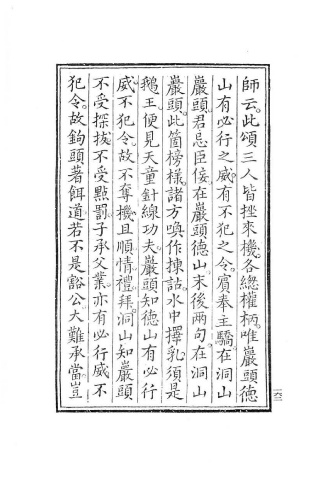 師云。此頌三人皆挫來機。各總權柄。唯巖頭德
山有必行之威。有不犯之令。賓奉主驕。在洞山
巖頭。君忌臣佞。在巖頭德山。末後兩句。在洞山
巖頭。此箇榜樣。諸方喚作揀話。水中擇乳須是
鵝王。便見天童針線功夫。巖頭知德山有必行
威不犯令。故不奪機且順情。禮拜。洞山知巖頭
不受探拔。不受點罰。子承父業。亦有必行威不
犯令。故鉤頭著餌道。若不是豁公大難承當。豈
一六三